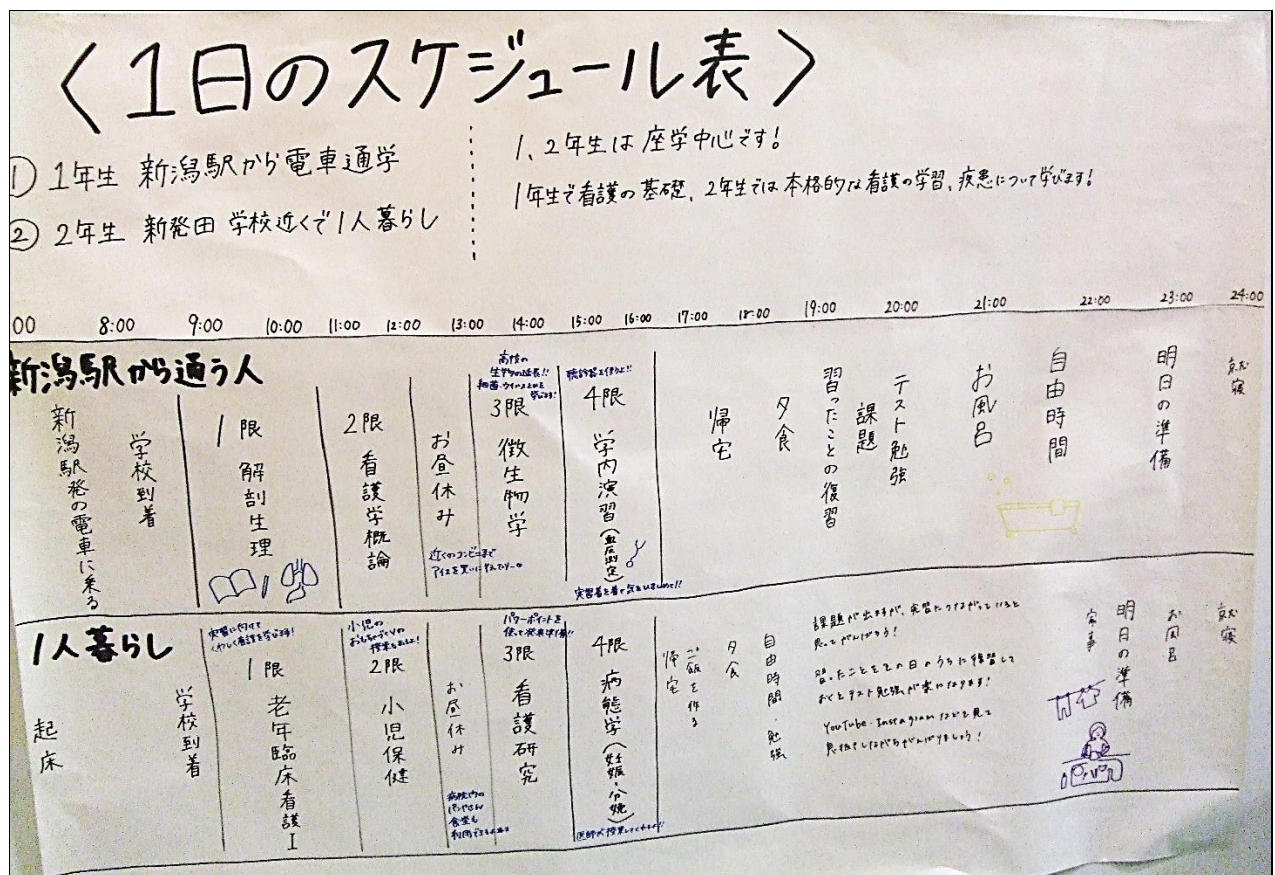 〈1日のスケジュール表〉
① 1年生 新潟駅から電車通学
② 2年生 新発田 学校近くで1人暮らし
1、2年生は座学中心です!
1年生で看護の基礎、2年生では本格的な看護の学習、疾患について学びます!
00 8:00 9:00 10:00 11:00 12:00 13:00 14:00 15:00 16:00 17:00 18:00 19:00 20:00 21:00 22:00 23:00 24:00
新潟駅から通う人
新潟駅発の電車に乗る
学校到着
1限 解剖生理
2限 看護学概論
お昼休み
近くのコンビニまで
アイスを買いに
高校の
生物の延長!!
細菌・ウイルスとかを
学びます!
3限 微生物学
聴診器を使うよ!!
4限 学内演習(血圧測定)
実習着を着て気をひきしめて!!
帰宅
夕食
習ったことの復習
課題
テスト勉強
お風呂
自由時間
明日の準備
就寝
1人暮らし
起床
学校到着
実習に向けて
くわしく看護を学びます!
1限 老年臨床看護Ⅰ
小児の
おもちゃづくりの
授業もあるよ!
2限 小児保健
お昼休み
病院内の
パンやさん
食堂も
利用できるよ
パワーポイントを
使って発表準備!!
3限 看護研究
4限 病態学(妊娠・分娩)
医師が授業してくれるよ!!
帰宅
ご飯を作る
夕食
自由時間・勉強
課題が出ますが、実習につながっていると
思ってがんばろう!
習ったことをその日のうちに復習して
おくとテスト勉強が楽になります!
YouTube・Instagramなどを見て
息抜きしながらがんばりましょう!
家事
明日の準備
お風呂
就寝